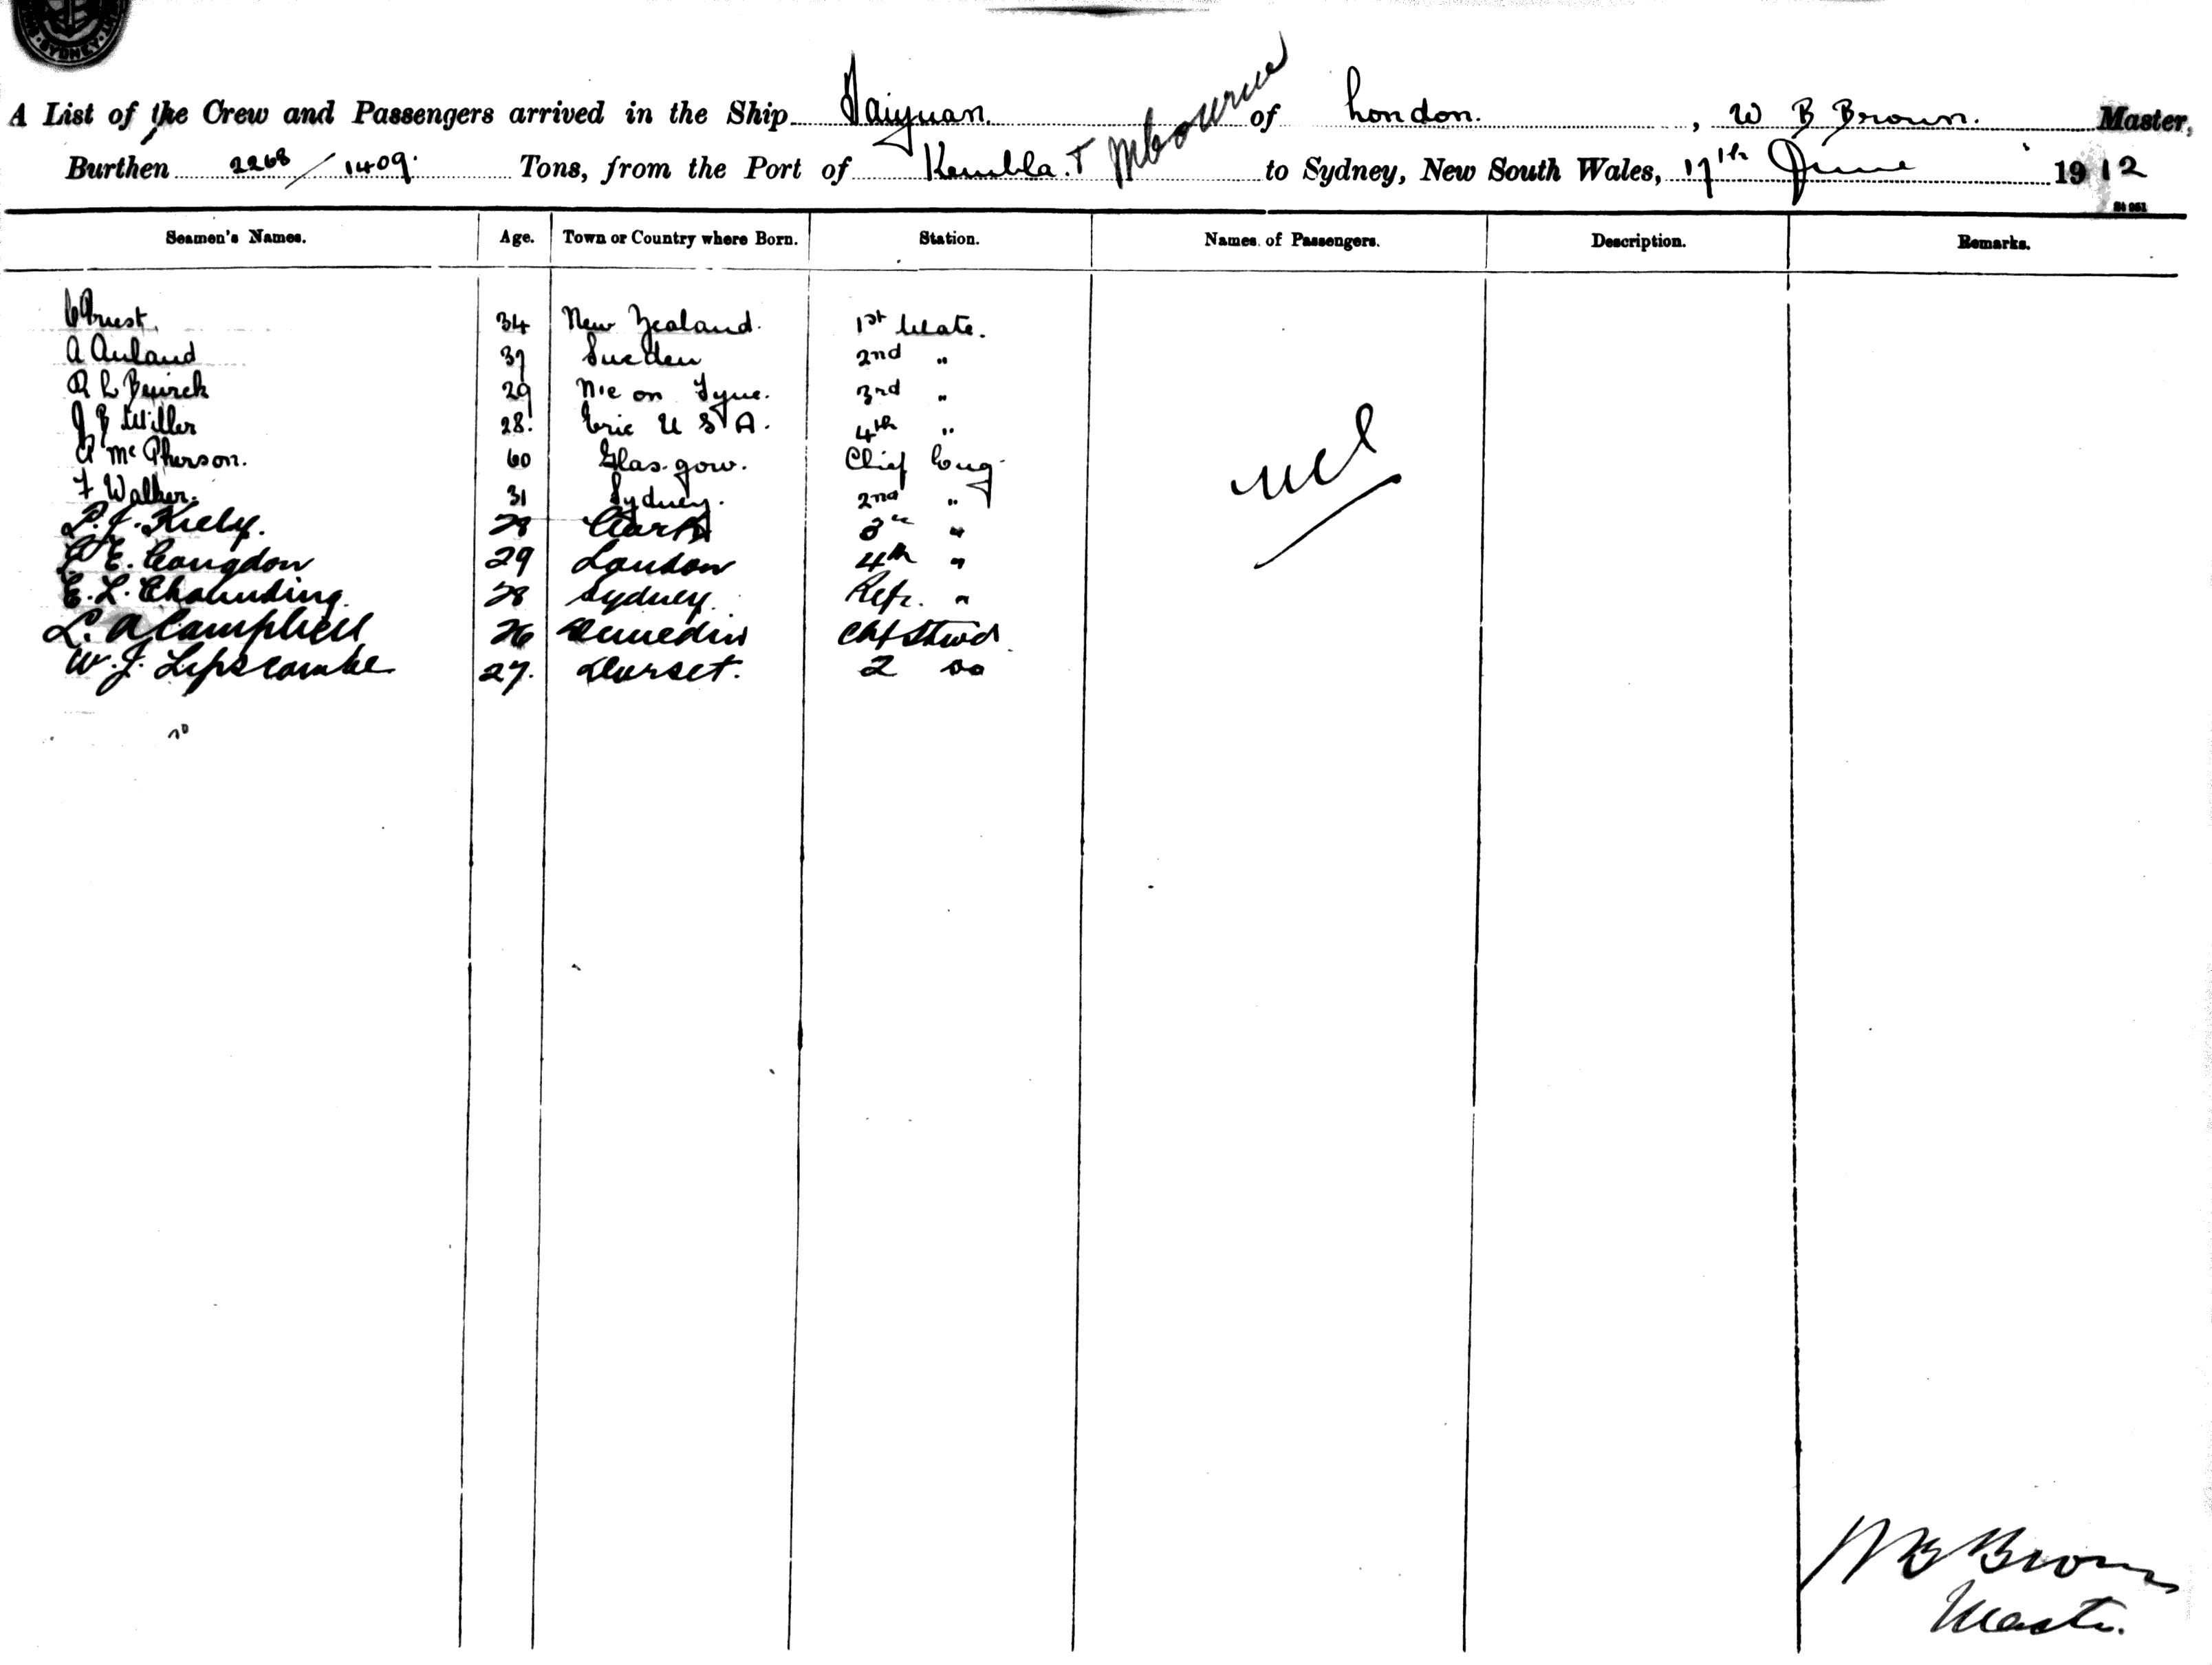 SYDNEY
A List of the Crew and Passengers arrived in the Ship Taiyuan. of London. , W B Brown. Master,
Burthen 2268/1409. Tons, from the Port of Kembla. & Mbourne to Sydney, New South Wales, 17th June 1912
Seamen's Names. Age. Town or Country where Born. Station. Names of Passengers. Description. Remarks.
Priest. 34 New Zealand. 1st Mate.
A 37 Sweden 2nd "
R L Bewick 29 N'c on Tyne. 3rd "
J B Miller 28. Erie U S A. 4th "
McPherson. 60 Glasgow. Chief Eng
F Walker. 31 Sydney. 2nd "
P. J. Kiely. 28 Cork "
E. Congdon 29 London 4th "
E. L. 28 Sydney. Refr. "
L. A Campbell 26 Dunedin Chf Stwd
W. J. Lipscombe 27. Dorset. 2 do
nil
W B Brown
Master.